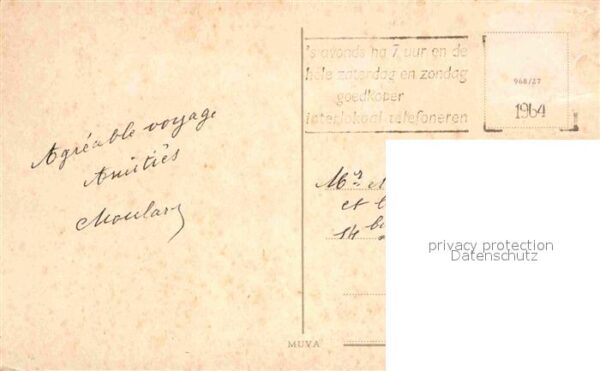 Agréable voyage
Amitiés
's avonds na 7 uur en de
hele zaterdag en zondag
goedkoper
interlokaal telefoneren
968/27
1964
Mrs
et
14
privacy protection
Datenschutz
MUVA